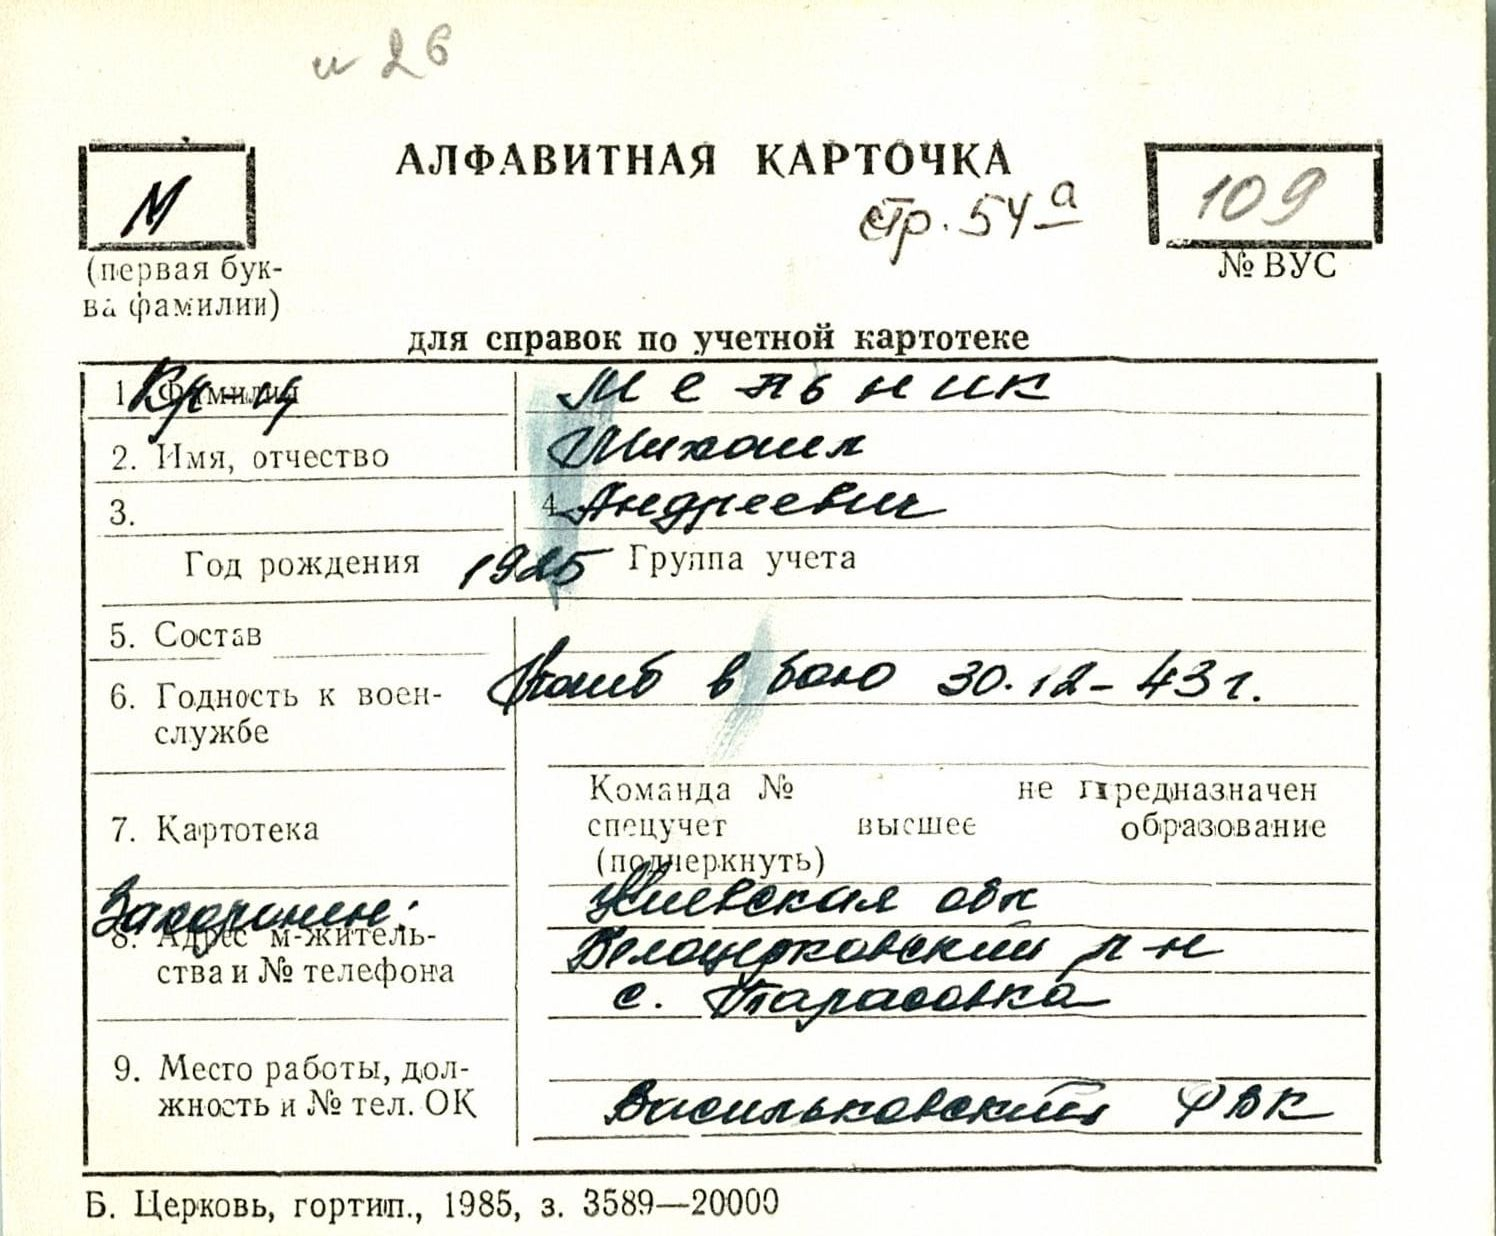 и 26
М
АЛФАВИТНАЯ КАРТОЧКА
стр. 54а
109
(первая бук-
ва фамилии)
№ ВУС
для справок по учетной картотеке
1. Фамилия
Кр-ц
Мельник
2. Имя, отчество
Михаил
3.
4. Андреевич
Год рождения 1925 Группа учета
5. Состав
6. Годность к воен-
службе
Погиб в бою 30.12-43 г.
7. Картотека
Команда № не предназначен
спецучет высшее образование
(подчеркнуть)
Захоронен:
8. Адрес м-житель-
ства и № телефона
Киевская обл
Белоцерковский р-н
с. Тарасовка
9. Место работы, дол-
жность и № тел. ОК
Васильковский РВК
Б. Церковь, гортип., 1985, з. 3589—20000